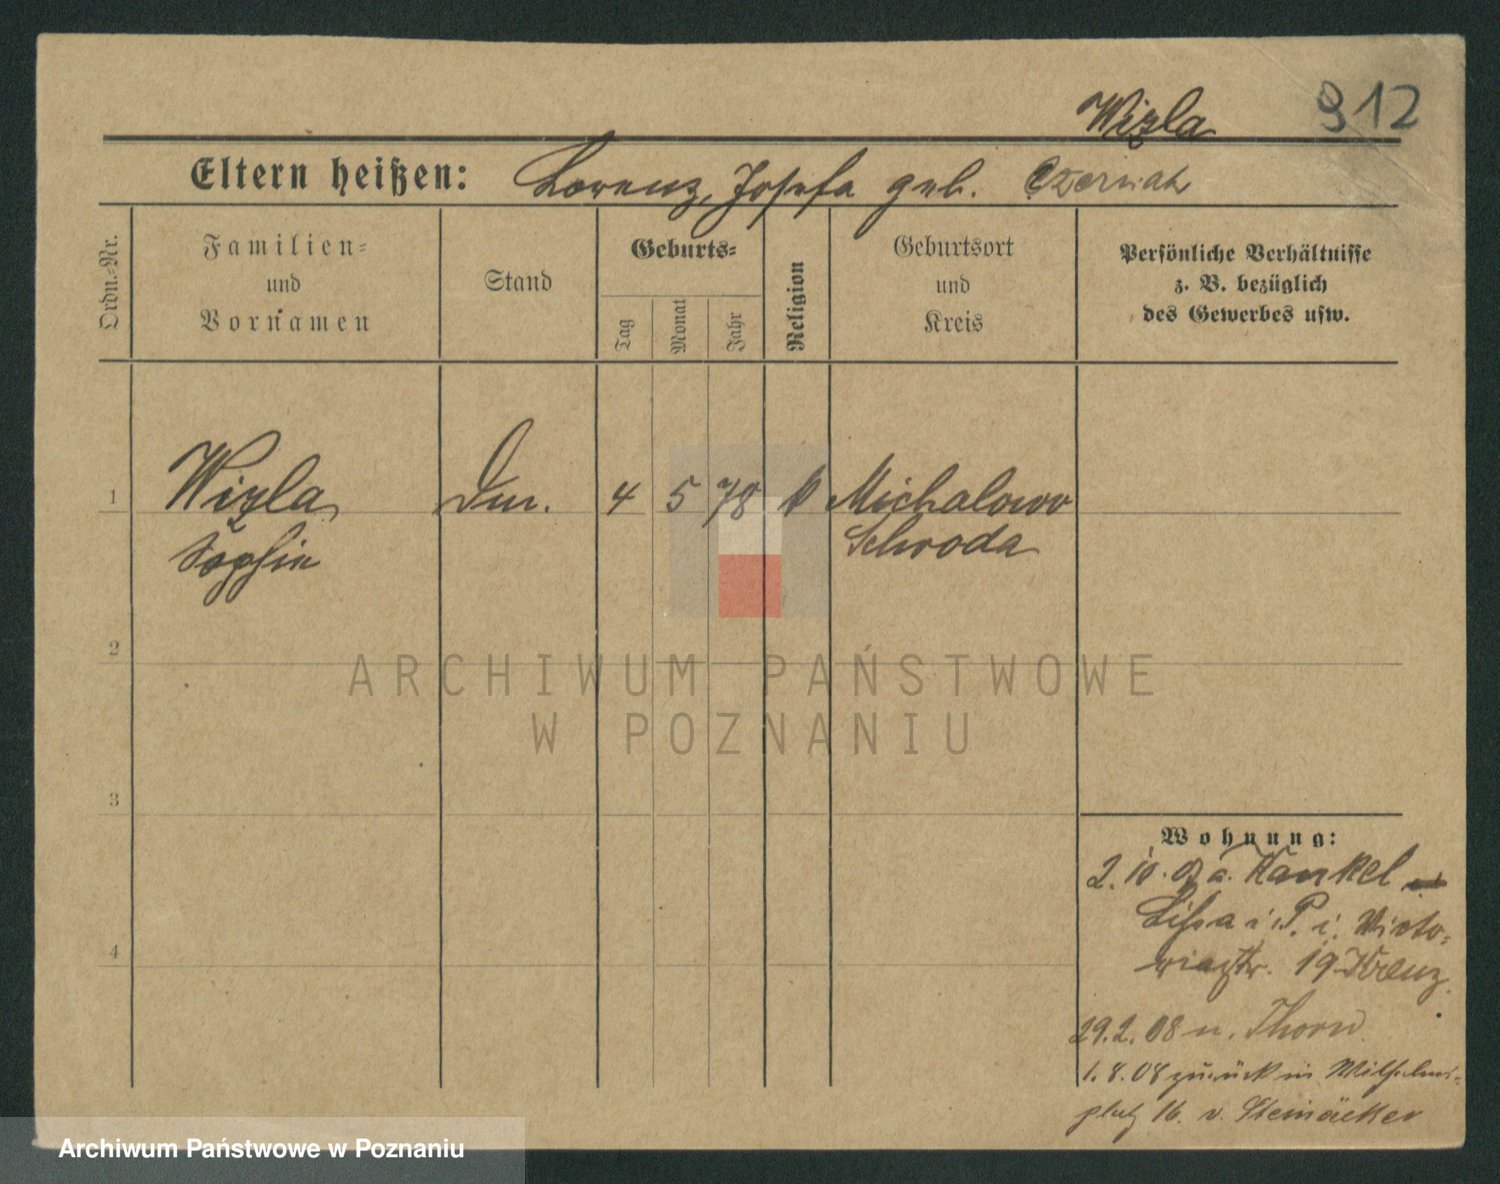 Wizla 912
Eltern heißen: Lorenz, Josefa geb. Czerniak
Ordn.-Nr.
Familien-
und
Vornamen
Stand
Geburts-
Tag
Monat
Jahr
Religion
Geburtsort
und
Kreis
Persönliche Verhältnisse
z. B. bezüglich
des Gewerbes usw.
1 Wizla, Dm. 4 5 78 k Michalowo
Sophie Schroda
2
3
4
ARCHIWUM PAŃSTWOWE
W POZNANIU
Wohnung:
2. 10. 07 a. Kankel
Lissa i. P. i. Victo-
riastr. 19 Krenz
29.2.08 n. Thorn
1.8.08 zurück in Wilhelms-
platz 16. v. Steinäcker
Archiwum Państwowe w Poznaniu